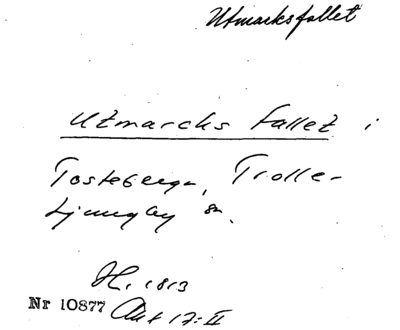 Utmarksfallet
Utmarcks fallet i
Tosteberga, Trolle-
Ljungby sn.
H. 1813
Nr 10877 Akt 17:II